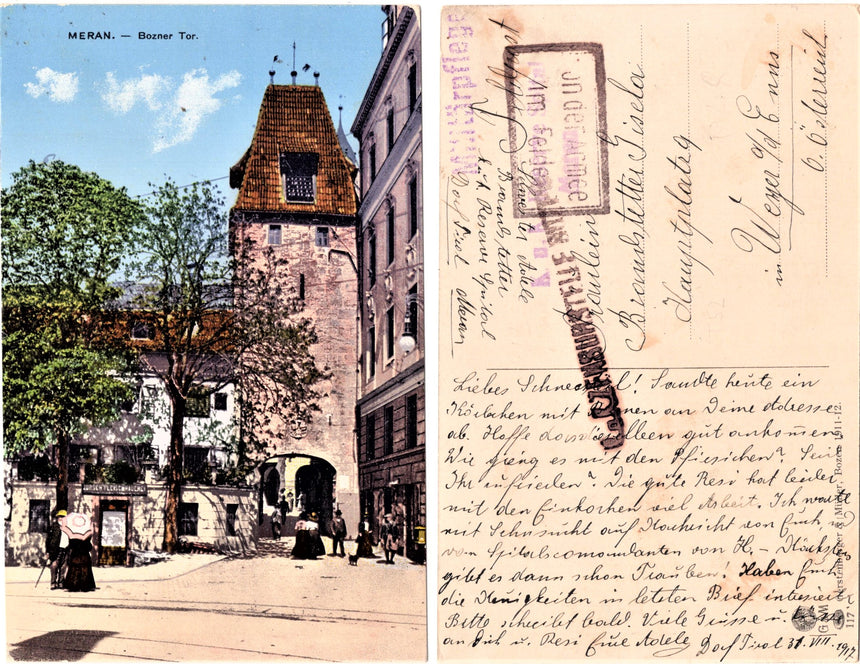 MERAN. — Bozner Tor.
Feldpost
Schwester Adele
Brandstetter
k.u.k. Reserve Spital
Dorf Tirol Meran
In der Armee
im Felde
ZENSURIERT
Fräulein
Brandstetter Gisela
Hauptplatz 9
in Weyer a/d Enns
O. Österreich
Liebes Schwesterl! Sandte heute ein
Körbchen mit Birnen an Deine Adresse
ab. Hoffe dass dieselben gut ankommen
Wie gieng es mit den Pfirsichen? Seid
Ihr zufrieden? Die gute Resi hat leider
mit den Einkochen viel Arbeit. Ich warte
mit Sehnsucht auf Nachricht von Euch, u.
vom Spitalscomandanten von H. – Nächstens
gibt es dann schon Trauben! Haben Euch
die Neuigkeiten in letzten Brief interessiert
Bitte schreibt bald. Viele Grüsse u.
an Dich u. Resi Eure Adele Dorf Tirol 31. VIII. 1917
Gerstenberger & Müller, Bozen 1911-12.
117